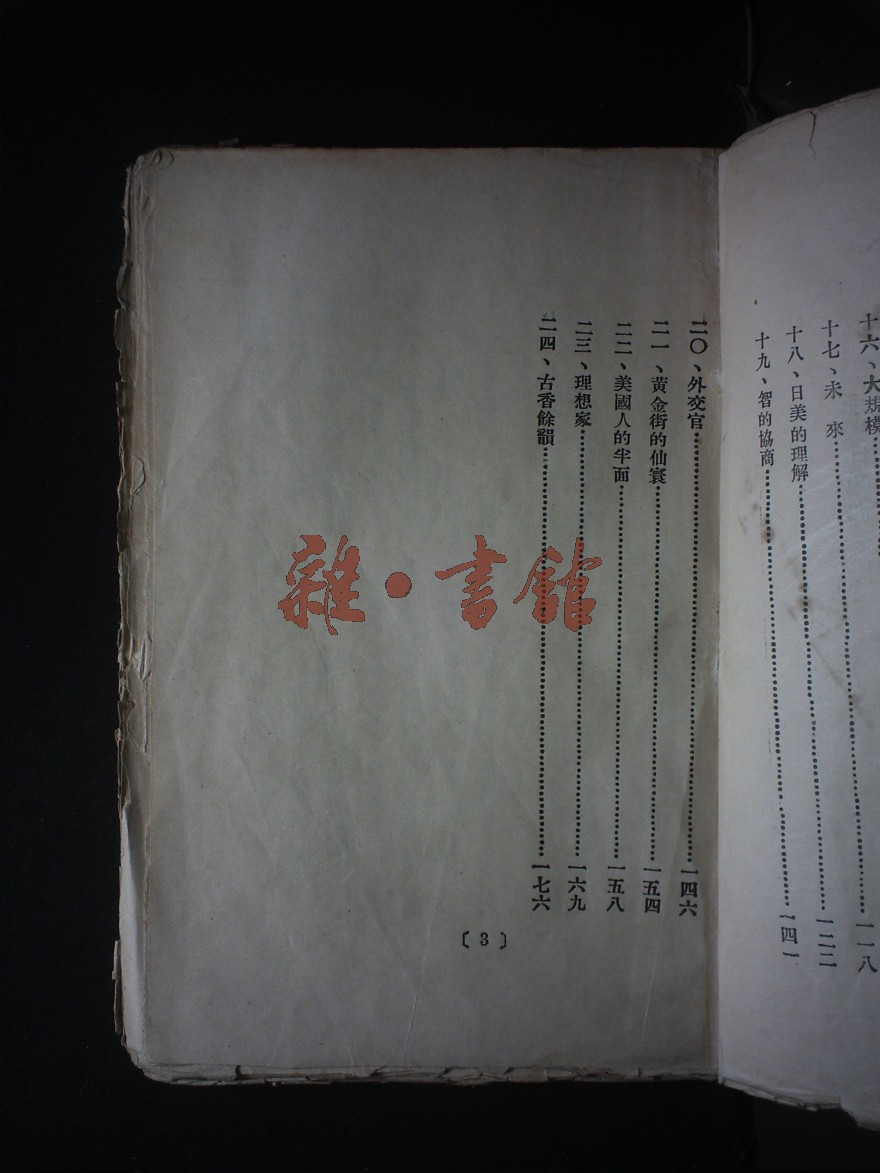 十六、大規模……一一八
十七、未來……一二二
十八、日美的理解……
十九、智的協商……一四一
二〇、外交官……一四六
二一、黃金街的仙寰……一五四
二二、美國人的半面……一五八
二三、理想家……一六九
二四、古香餘韻……一七六
〔3〕
雜·書館